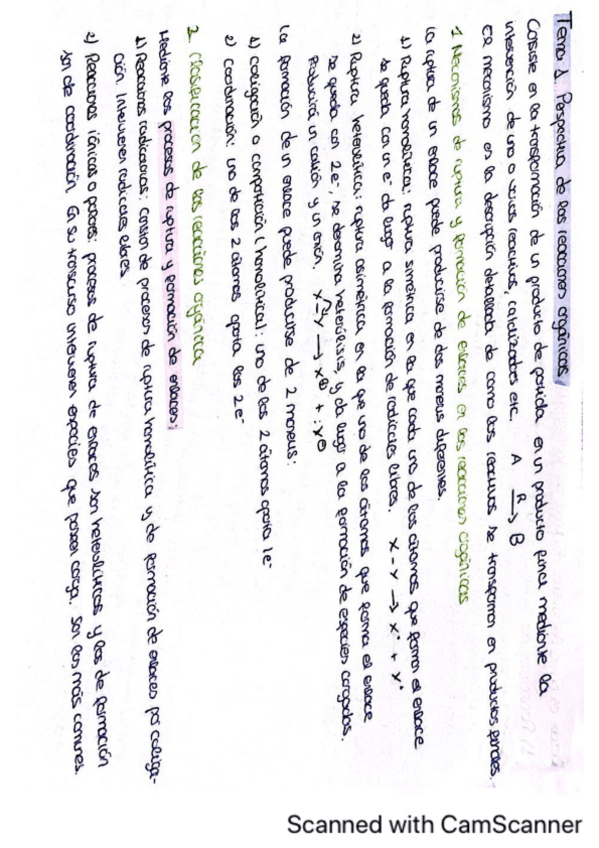 Tema 1 Perspectiva de las reacciones orgánicas
Consiste en la transformación de un producto de partida en un producto final mediante la
intervención de uno o varios reactivos, catalizadores etc. A R→ B
El mecanismo es la descripción detallada de como los reactivos se transforman en productos finales.
1 Mecanismos de ruptura y formación de enlaces en las reacciones orgánicas
La ruptura de un enlace puede producirse de dos maneras diferentes.
1) Ruptura homolítica: ruptura simétrica en la que cada uno de los átomos que forman el enlace
se queda con un e⁻ da lugar a la formación de radicales libres. X - Y → X· + Y·
2) Ruptura heterolítica: ruptura asimétrica en la que uno de los átomos que forma el enlace
se queda con 2e⁻, se denomina heterólisis, y da lugar a la formación de especies cargadas.
Producirá un catión y un anión. X-Y → X⊕ + :Y⊖
La formación de un enlace puede producirse de 2 maneras:
1) coligación o compartición (homolítica): uno de los 2 átomos aporta 1e⁻
2) coordinación: uno de los 2 átomos aporta los 2e⁻
2 Clasificación de las reacciones orgánica
Mediante los procesos de ruptura y formación de enlaces:
1) Reacciones radicalarias: constan de procesos de ruptura homolítica y de formación de enlaces por coliga-
ción. Intervienen radicales libres.
2) Reacciones iónicas o polares: procesos de ruptura de enlaces son heterolíticas y los de formación
son de coordinación. En su transcurso intervienen especies que poseen carga. Son las más comunes.
Scanned with CamScanner